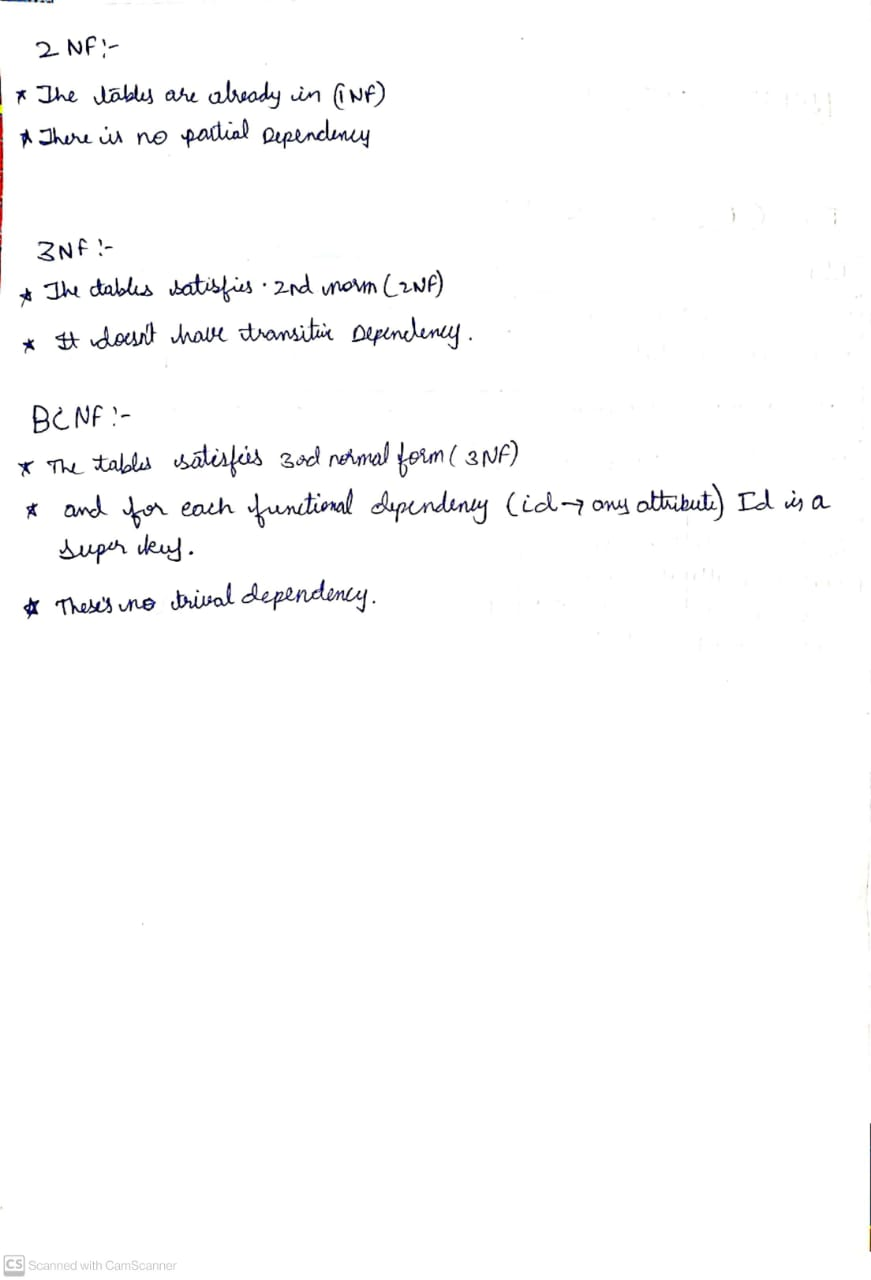 2 NF:-
* The tables are already in (1NF)
* There is no partial Dependency
3NF :-
* The tables satisfies . 2nd norm (2NF)
* It doesn't have transitive Dependency.
BCNF :-
* The tables satisfies 3rd normal form (3NF)
* and for each functional dependency (id → any attribute) Id is a
super key.
* There's no trival dependency.
CS Scanned with CamScanner